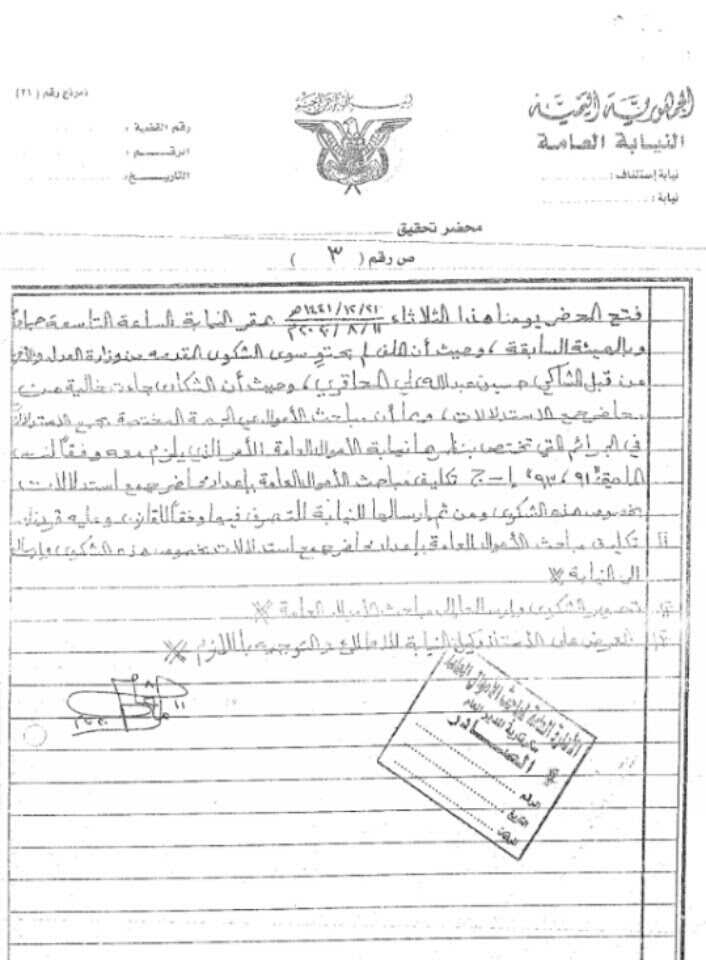 نموذج رقم (٢١)
بسم الله الرحمن الرحيم
الجمهورية اليمنية
النيابة العامة
رقم القضية :
الرقم :
التاريخ :
نيابة إستئناف :
نيابة :
محضر تحقيق
ص رقم ( ٣ )
فتح المحضر يومنا هذا الثلاثاء ١٤٤١/١٢/٢١هـ ٢٠٢٠/٨/١١ بمقر النيابة الساعة التاسعة صباحاً
وبالهيئة السابقة ، وحيث أن الملف لم يحتو سوى الشكوى المقدمه من وزارة العدل
من قبل الشاكي حسين عبدالله علي الحاقري ، وحيث أن الشكاوى جاءت خالية من
محاضر جمع الاستدلالات ، وبما أن مباحث الأموال هي الجهة المختصة بجمع الاستدلالات
في الجرائم التي تختص بنظرها نيابة الأموال العامة الأمر الذي يلزم معه وفقاً لنص
المادة "٩١ ، ٩٢" إ-ج تكليف مباحث الأموال العامة بإعداد محاضر جمع استدلالات
بخصوص هذه الشكوى ومن ثم إرسالها للنيابة للتصرف فيها وفقاً للقانون وعليه قررنا:
١) تكليف مباحث الأموال العامة بإعداد محاضر جمع استدلالات بخصوص هذه الشكوى وإرسالها
الى النيابة
٢) تصوير الشكوى وإرسالها إلى مباحث الأموال العامة
٣) العرض على الأستاذ وكيل النيابة للاطلاع والتوجيه بما يلزم
الإدارة العامة لمباحث الأموال العامة
سكرتارية مدير عام
الصادر
الرقم
التاريخ